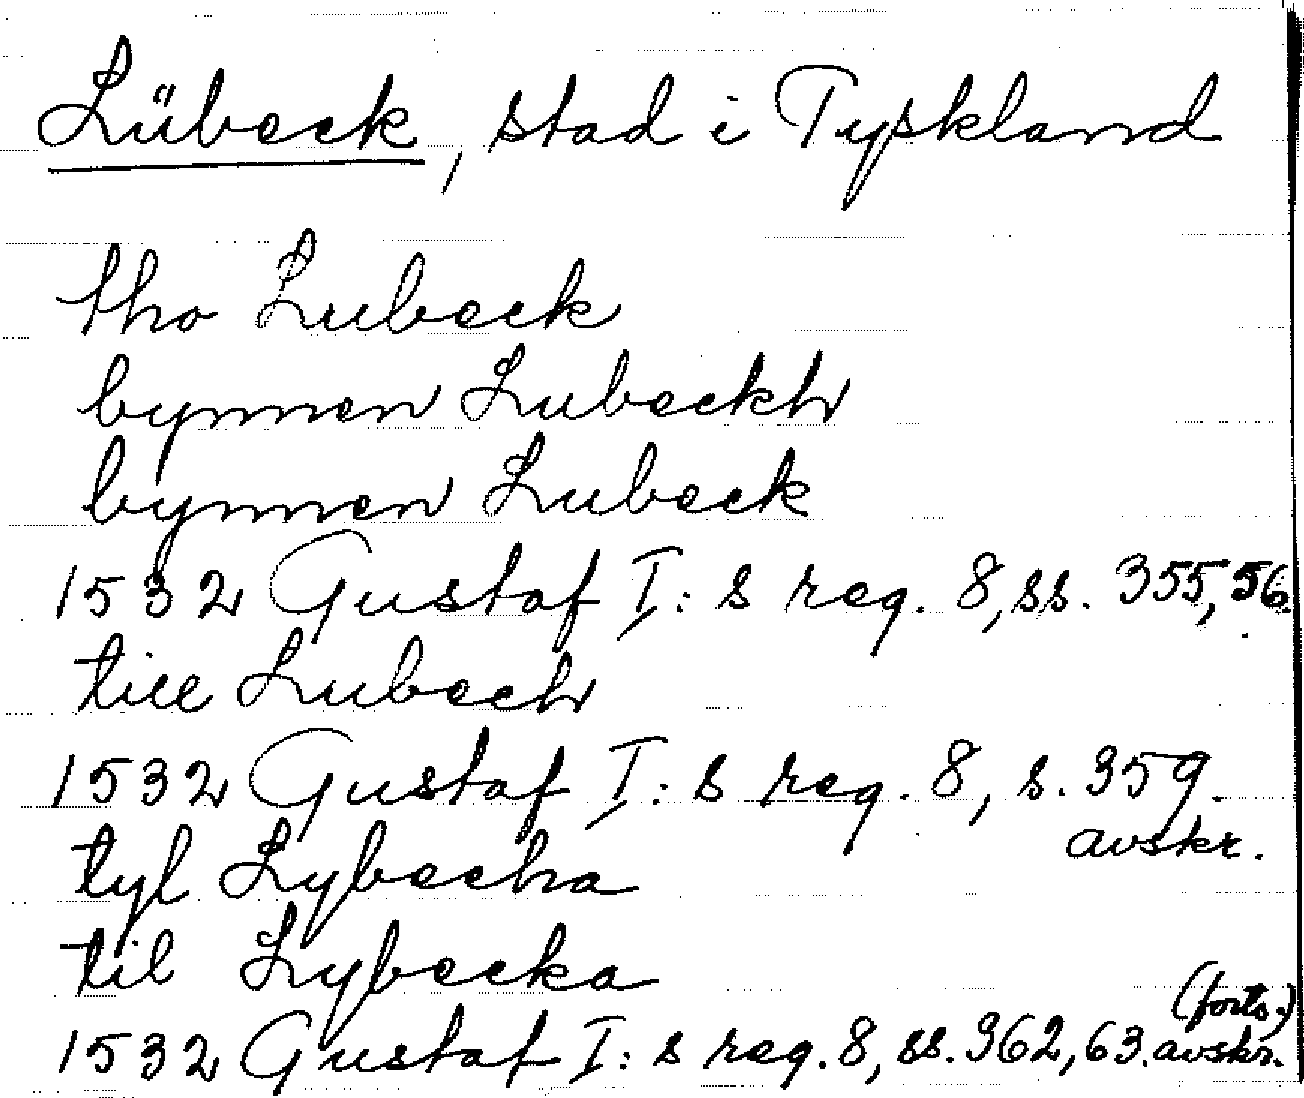 Lübeck, stad i Tyskland
tho Lubeck
bynnen Lubeckh
bynnen Lubeck
1532 Gustaf I:s reg. 8, ss. 355, 56.
till Lubech
1532 Gustaf I:s reg. 8, s. 359.
avskr.
tyl Lybecha
til Lybecka
(forts.)
1532 Gustaf I:s reg. 8, ss. 362, 63. avskr.